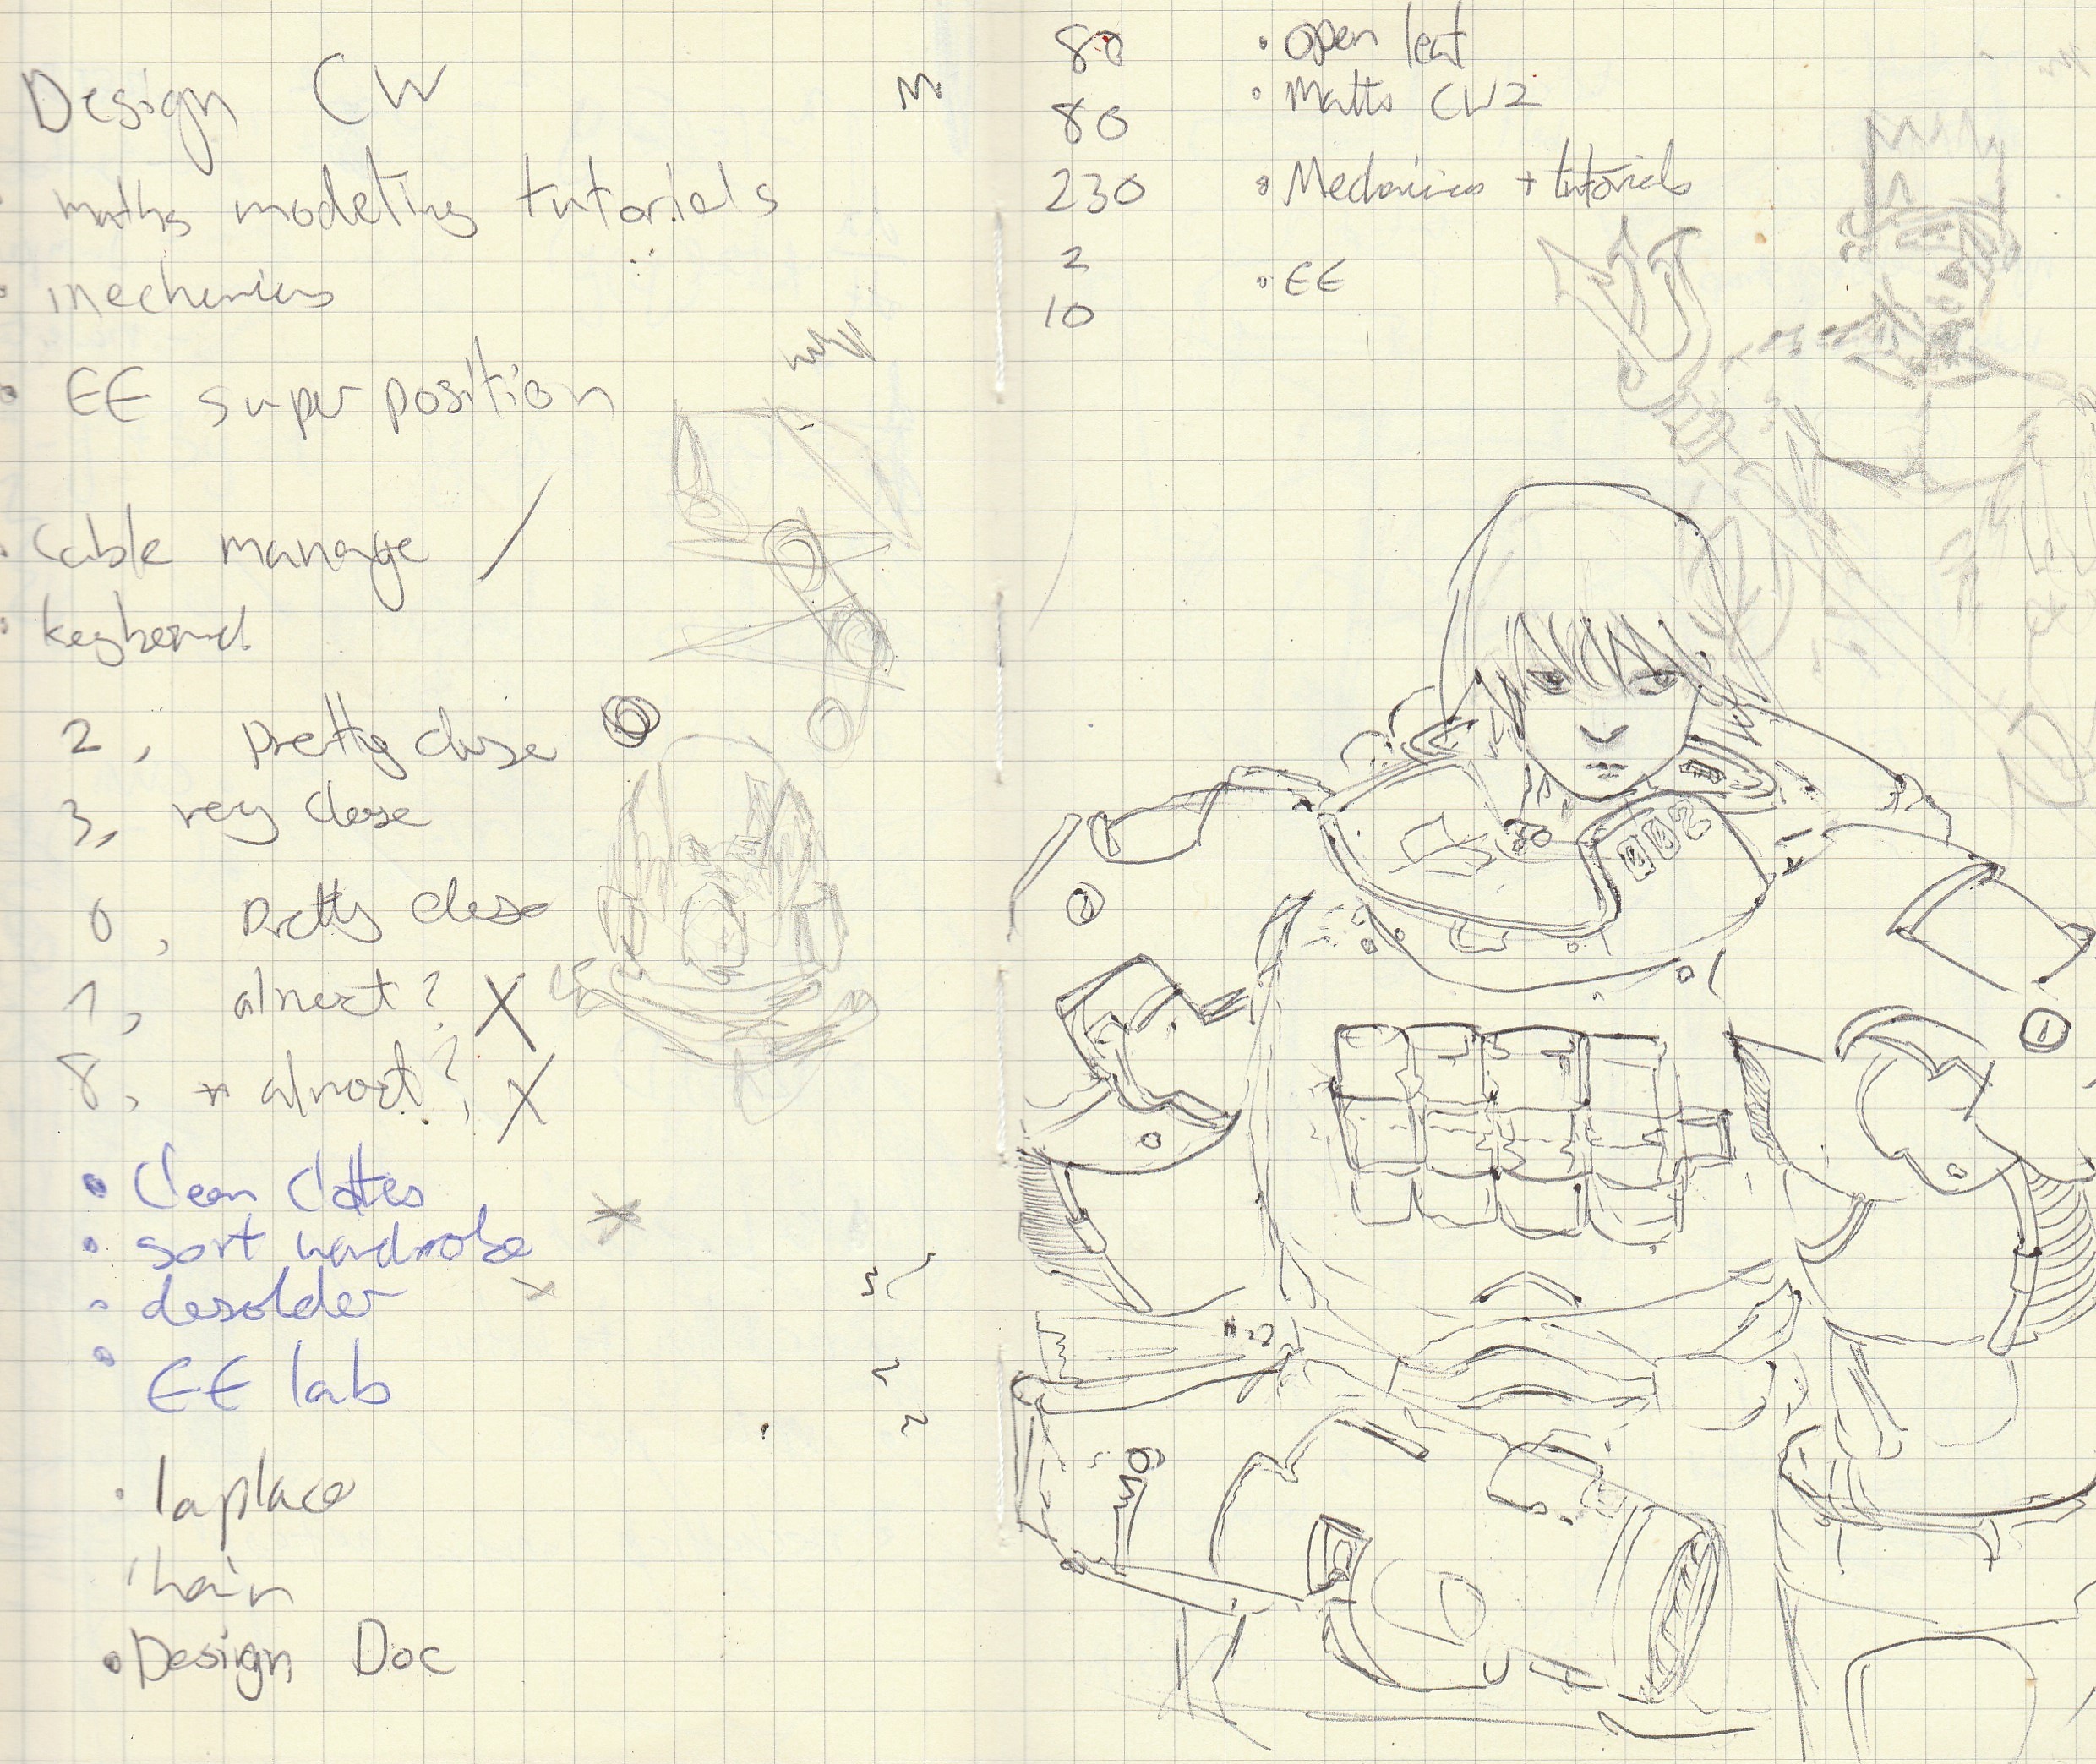 Design CW
maths modeling tutorials
mechanics
EE superposition
cable manage /
keyboard
2, Pretty close
3, very close
0, Pretty close
1, almost? X
8, almost? X
• Clean Clothes
• sort wardrobe
• desolder
• EE lab
• laplace
hair
• Design Doc
80
80
230
2
10
• open leaf
• Maths CW2
• Mechanics + tutorials
• EE
002